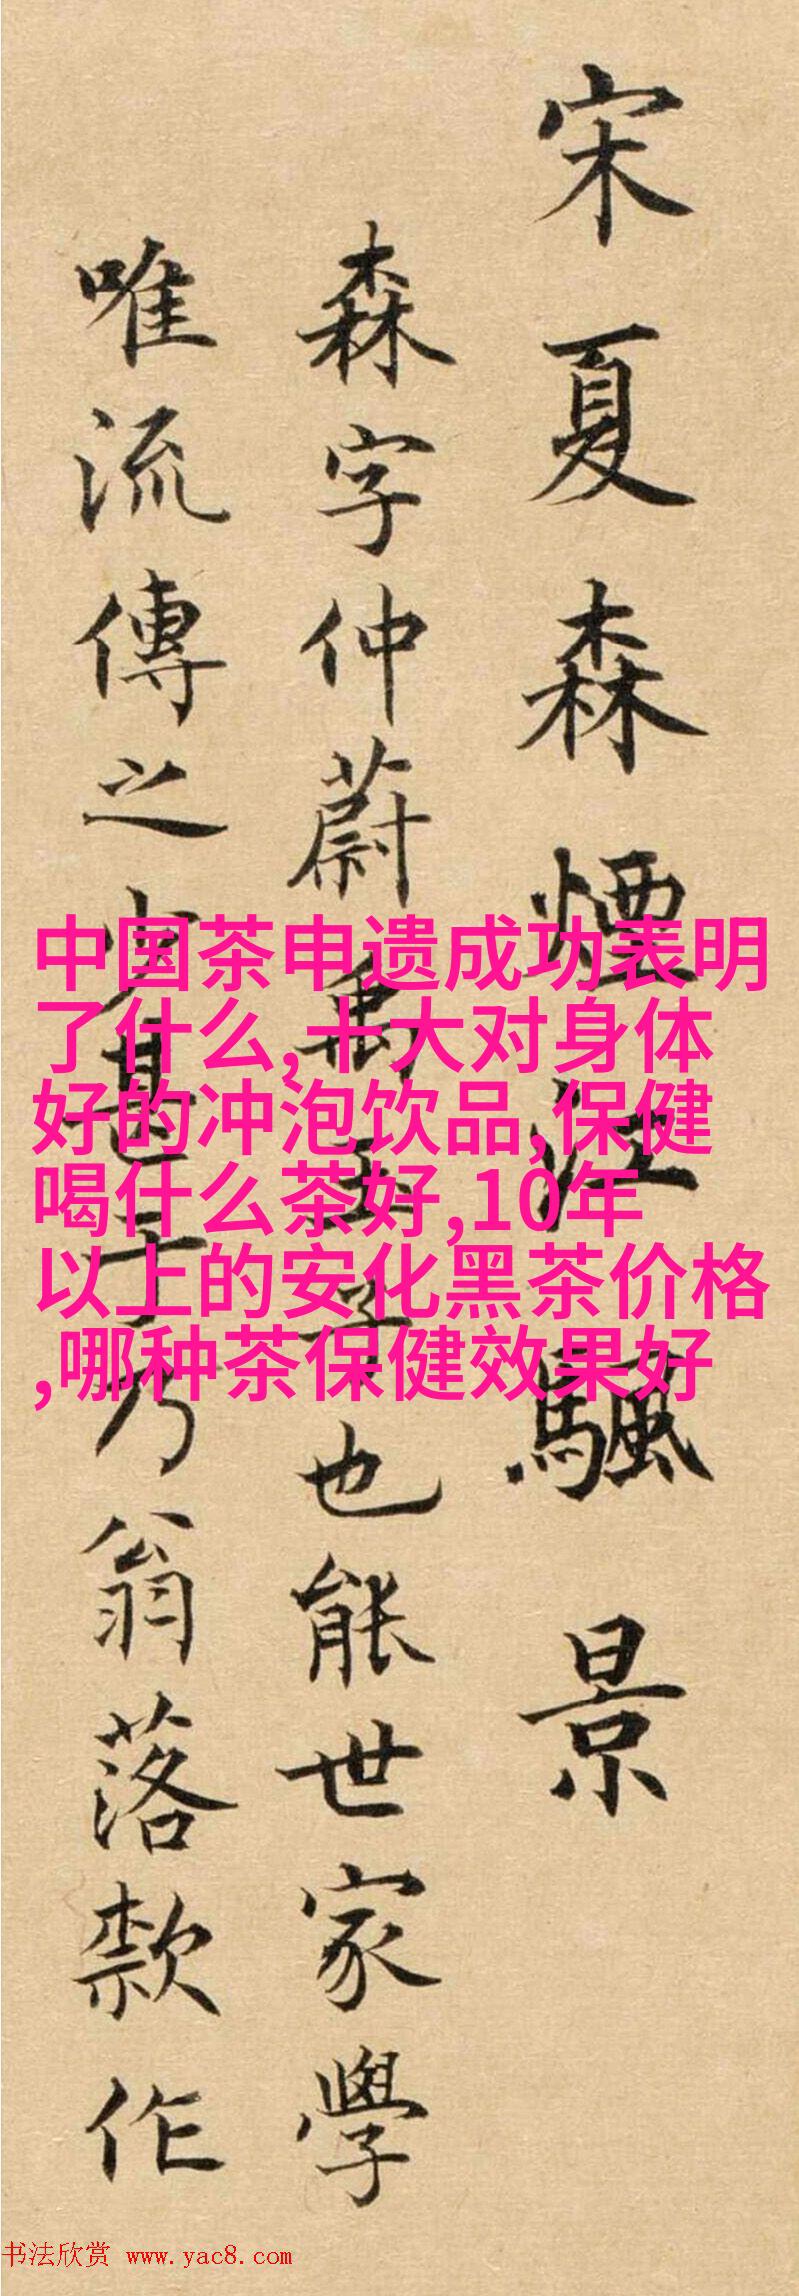 宋夏森煙江颿景
森字仲蔚禹玉子也能世家學
唯流傳之少甚子乃翁落款作
中国茶申遗成功表明
了什么,十大对身体
好的冲泡饮品,保健
喝什么茶好,10年
以上的安化黑茶价格
,哪种茶保健效果好
书法欣赏 www.yac8.com